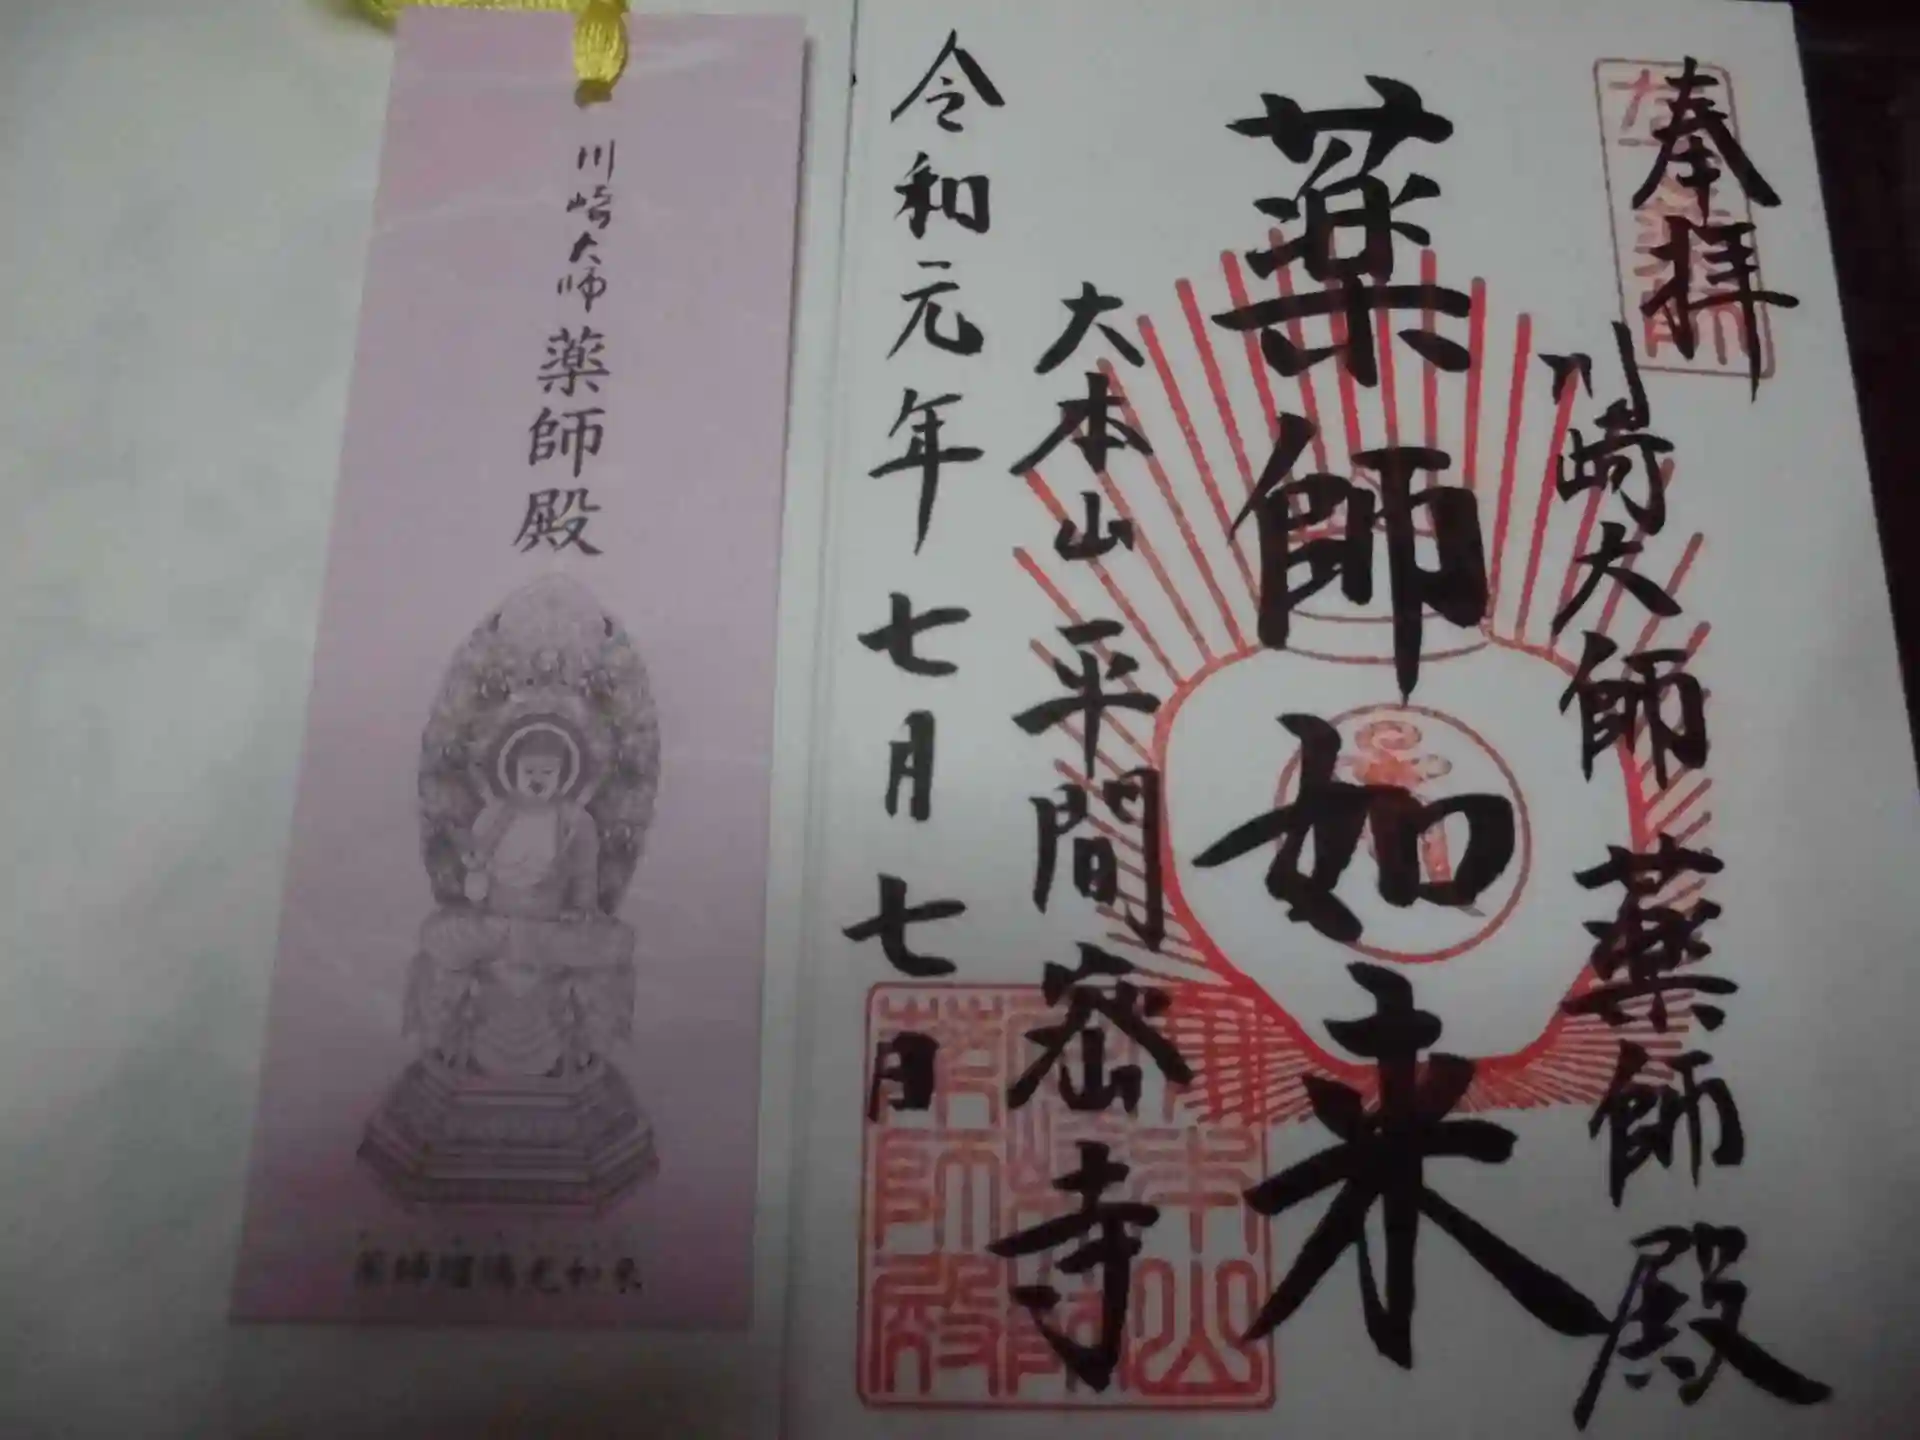 奉拝
川崎大師 薬師殿
薬師如来
大本山 平間密寺
令和元年七月七日
大本山
薬師殿
川崎大師 薬師殿
薬師瑠璃光如来